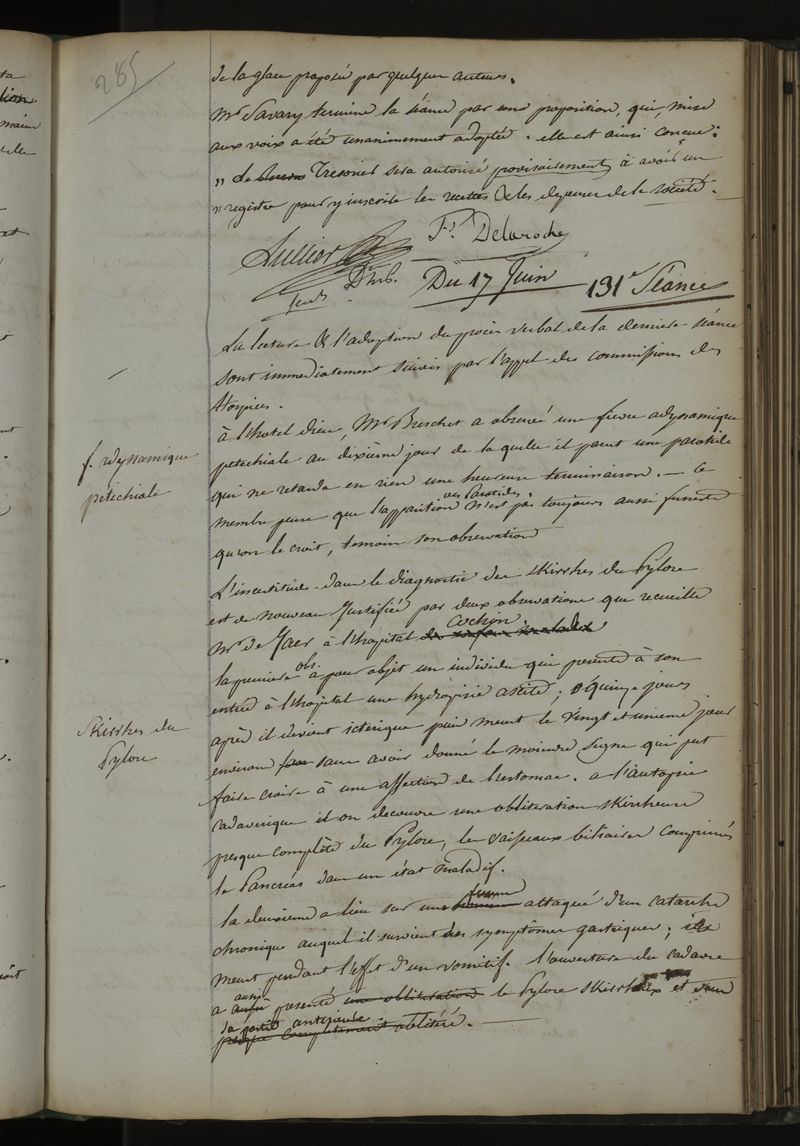 285
de la glace proposée par quelques auteurs.
Mr Savary termine la séance par une proposition, qui, mise
aux voix a été unanimement adoptée. elle est ainsi concue:
" Le Tresorier sera autorisé provisoirement à avoir un
" registre pour y inscrire les recettes & les depenses de la société.
Fs. Delaroche
Du 17 Juin 131e Séance
La lecture & l'adoption du procès verbal de la derniere séance
sont immediatement suivis par l'appel des commissions des
hospices.
à l'hotel dieu, Mr Breschet a observé une fievre adynamique
petechiale au dixième jour de la quelle il parut une parotide
qui ne retarda en rien une heureuse terminaison. — Ce
membre pense que l'apparition des Parotides n'est pas toujours aussi funeste
qu'on le croit, temoin son observation
f. adynamique
petechiale
L'incertitude dans le diagnostic des skirrhes du Pylore
est de nouveau justifiée par deux observations que recueille
Mr de Jaer à l'hopital des enfans malades Cochin
la premiere obs. a pour objet un individu qui presente à son
entrée à l'hopital une hydropisie ascite; quinze jours
après il devient icterique puis meurt le vingt et unieme jour
environ sans avoir donné le moindre signe qui put
faire croire à une affection de l'estomac. a l'autopsie
cadaverique il on decouvre une obliteration skirrheuse
presque complète du Pylore, les vaisseaux biliaires comprimés
le Pancréas dans un état maladif.
Skirrhes du
Pylore
la deuxieme a lieu sur une femme attaqué d'un catarrhe
chronique auquel il survient des symptômes gastriques; elle
meurt pendant l'effet d'un vomitif. l'ouverture du cadavre
a aussi presenté une obliteration le Pylore skirrheux et dans
sa partie anterieure.
presque completement oblitéré. —